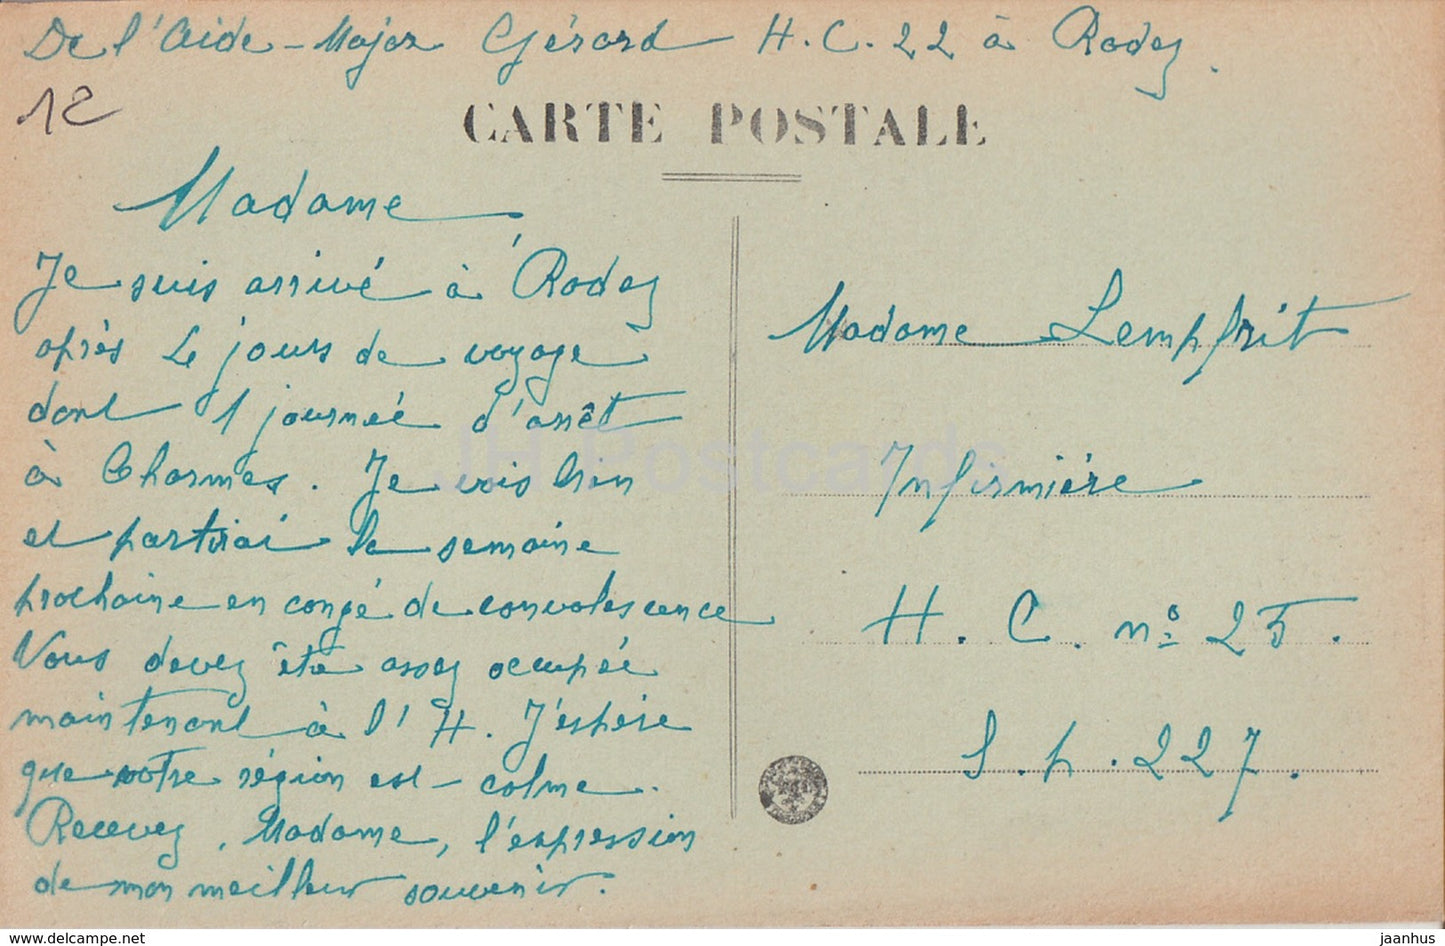 De l'Aide-Major Gérard H.C.22 à Rodez.
12
CARTE POSTALE
Madame,
Je suis arrivé à Rodez
après 4 jours de voyage
dont 1 journée d'arrêt
à Charmes. Je vais bien
et partirai la semaine
prochaine en congé de convalescence
Vous devez être assez occupée
maintenant à l'H. J'espère
que votre région est calme.
Recevez, Madame, l'expression
de mon meilleur souvenir.
Madame Lempfrit
Infirmière
H. C. nº 25.
S.p.227.
JH Postcards
www.delcampe.net
jaanhus